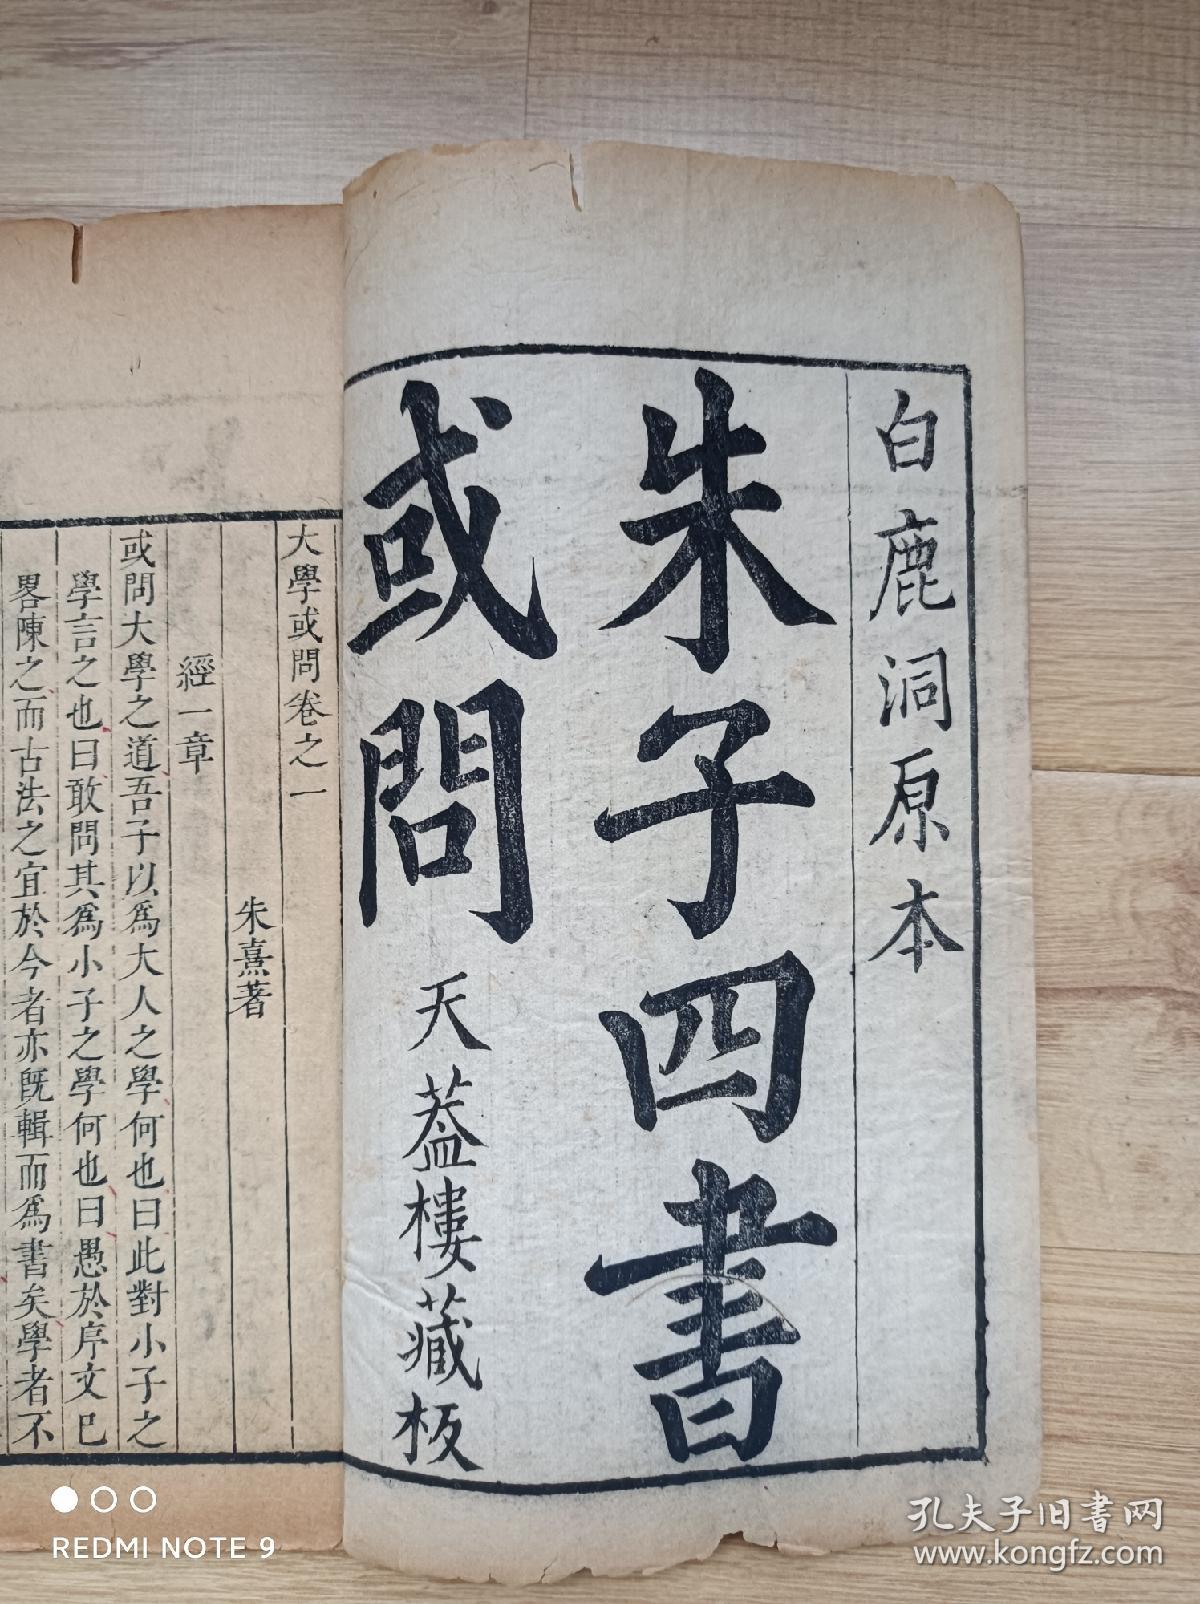 白鹿洞原本
朱子四書
或問
天蓋樓藏板
大學或問卷之一
朱熹著
經一章
或問大學之道吾子以爲大人之學何也曰此對小子之
學言之也曰敢問其爲小子之學何也曰愚於序文已
畧陳之而古法之宜於今者亦旣輯而爲書矣學者不
REDMI NOTE 9
孔夫子旧书网
www.kongfz.com